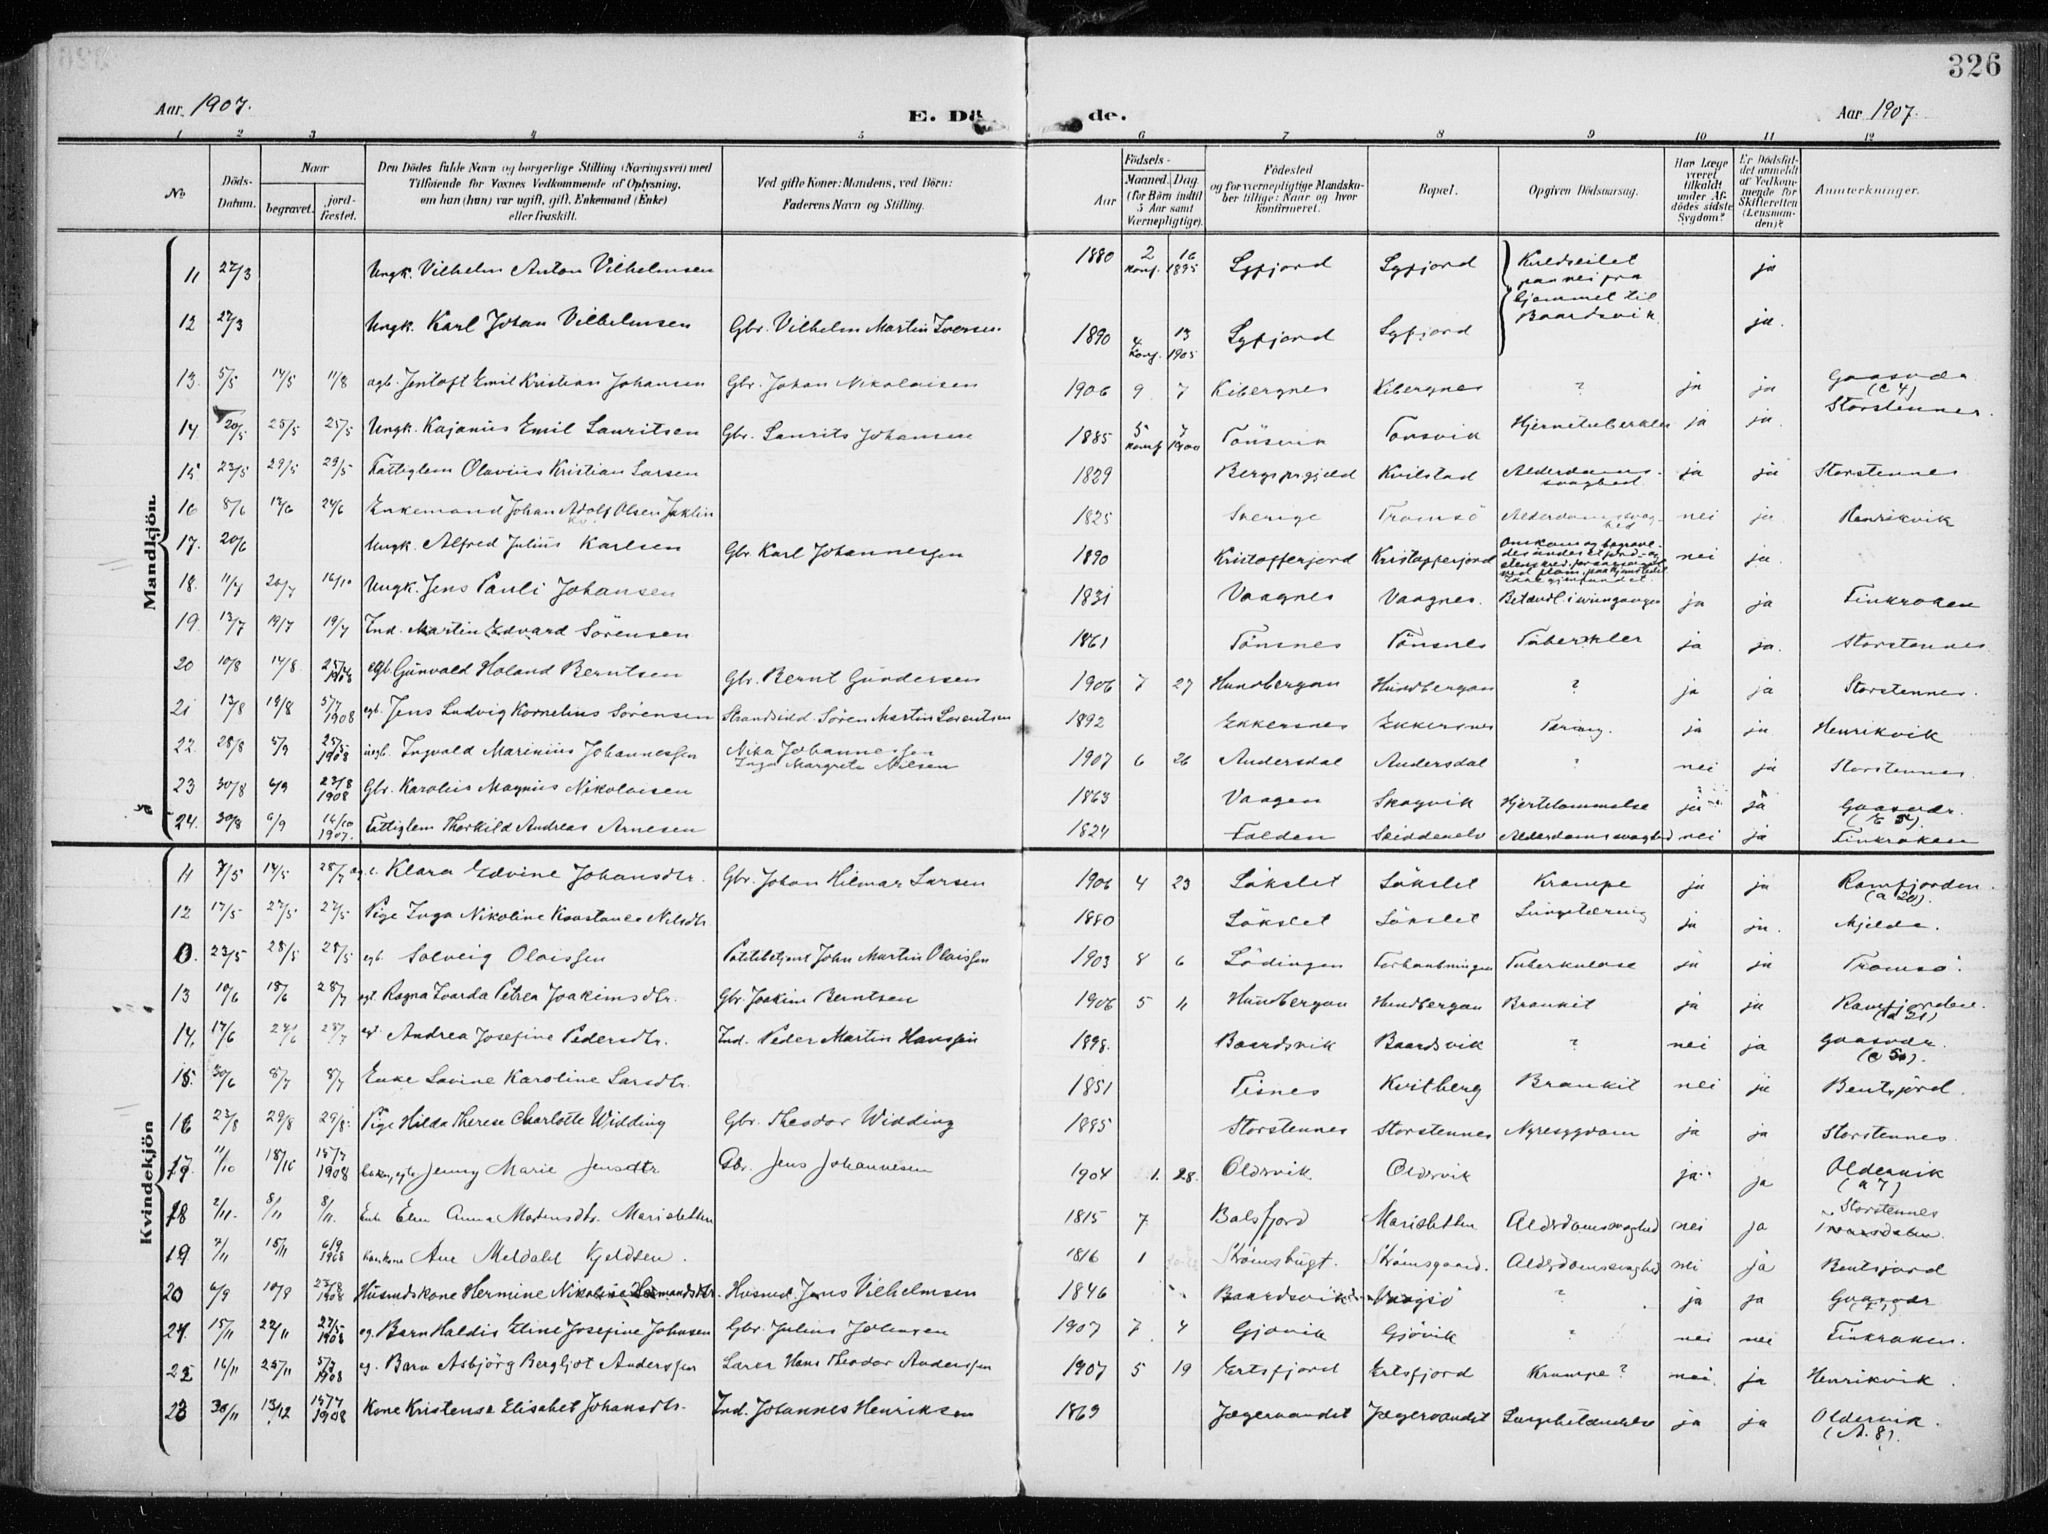 326
Aar 1907.
E. Dö de.
Aar 1907.
1 2 3 4 5 6 7 8 9 10 11 12
No
Döds-Datum.
Naar
begravet.
jord-fæstet.
Den Dödes fulde Navn og borgerlige Stilling (Næringsvei) med Tilföiende for Voxnes Vedkommende af Oplysning, om han (hun) var ugift, gift, Enkemand (Enke) eller fraskilt.
Ved gifte Koner: Mandens, ved Börn: Faderens Navn og Stilling.
Födsels-
Aar
Maaned. Dag.
(for Börn indtil 5 Aar samt Værnepligtige).
Födested og for værnepligtige Mandskaber tillige: Naar og hvor konfirmeret.
Bopæl.
Opgiven Dödsaarsag.
Har Læge været tilkaldt under Afdödes sidste Sygdom?
Er Dödsfaldet anmeldt af Vedkommende for Skifteretten (Lensmanden)?
Anmærkninger.
Mandkjön.
11 27/3 Ungk. Vilhelm Anton Vilhelmsen 1880 2 16 Konf. 1895 Lyfjord Lyfjord Kuldseilet paa vei fra Hjemmet til Baardsvik ja
12 27/3 Ungk. Karl Johan Vilhelmsen Gbr. Vilhelm Martin Iversen 1890 4 13 Konf. 1905 Lyfjord Lyfjord ja.
13. 5/5 14/5 11/8 agb. Jentoft Emil Kristian Johansen Gbr. Johan Nikolaisen 1906 9 7 Kibergnes Kibergnes ? ja ja Gaasvær (C 4)
14. 20/5 25/5 25/5 Ungk. Kajanus Emil Lauritsen Gbr. Laurits Johansen 1885 5 7 Konf 1900 Tönsvik Tonsvik Hjernetuberkler ja ja. Storstennes.
15 23/5 29/5 29/5 Fattiglem Olavius Kristian Larsen 1829 Bergs prgjæld Kvilstad Alderdomssvaghed ja ja Storstennes
16 8/6 17/6 24/6 Enkemand Johan Adolf Olsen Jaklin 1825 Sverige Tromsö Alderdomssvaghed nei ja. Henrikvik
17. 20/6 Ungk. Alfred Julius Karlsen Gbr. Karl Johannessen 1890 Kristofferjord Kristofferjord nei ja.
18. 11/7 20/7 16/10 Ungk. Jens Pauli Johansen 1831 Vaagnes Vaagnes. ja ja Finkroken
19. 13/7 19/7 19/7 Ind. Martin Edvard Sörensen 1861 Tönsnes Tönsnes Tuberkler ja ja. Storstennes
20 10/8 14/8 25/5 1908 egb. Gunvald Holand Berntsen Gbr. Bernt Gundersen 1906 7 27 Hundbergan Hundbergan ? ja ja Storstennes.
21 13/8 19/8 5/7 1908 egb. Jens Ludvig Kornelius Sörensen Strandsidd. Sören Martin Lorentsen 1892 Ekkersnes Ekkersnes Tæring. ja ja Henrikvik
22. 28/8 5/9 25/5 1908 uegb. Ingvald Marinius Johannessen Nika Johannessen Inga Margrete Nilsen 1907 6 26 Andersdal Andersdal ? nei ja Storstennes.
23 30/8 6/9 23/8 1908 Gbr. Karolius Magnus Nikolaisen 1863 Vaagen Skogvik Hjertelammelse ja ja Gaasvær. (E 5)
24. 30/8 6/9 16/10 1907. Fattiglem Thorkild Andreas Arnesen 1824 Folden Skiddenelv Alderdomssvaghed nei ja Finkroken
Kvindekjön
11 7/5 14/5 28/7 Klara Edvine Johansdtr. Gbr. Johan Hilmar Larsen 1906 4 23 Lökslet Lökslet Krampe ja ja Ramfjorden. (a 20)
12 17/5 27/5 27/5 Pige Inga Nikoline Konstance Nilsdtr 1880 Lökslet Lökslet Lungetæring ja ja. Mjelde.
0. 23/5 28/5 28/5 egb. Solveig Olaissen Politibetjent John Martin Olaissen 1903 8 6 Lödingen Forhaabningen Tuberkulose ja ja Tromsö.
13 10/6 18/6 28/7 egt. Ragna Ivarda Petrea Joakimsdtr. Gbr. Joakim Berntsen 1906 5 11 Hundbergan Hundbergan Bronkit ja ja Ramfjorden. (a 21)
14. 17/6 24/6 28/7 Andrea Josefine Pedersdtr. Ind. Peder Martin Hanssen 1898. Baardsvik Baardsvik ? nei ja Gaasvær. (C 5a).
15. 30/6 8/7 8/7 Enke Lovine Karoline Larsdtr. 1851 Tisnes Kvitberg Bronkit nei ja Bentsjord.
16 23/8 29/8 29/8. Pige Hilda Therese Charlotte Widding Gbr. Theodor Widding 1885 Storstennes Storstennes Nyresygdom ja ja Storstennes.
17 11/10 18/10 15/7 1908 Jenny Marie Jensdtr Gbr. Jens Johannesen 1904 1. 28. Oldervik. Oldervik ja ja Oldervik (a 7)
18 2/11. 8/11 8/11. Enke Elen Anna Mortensdtr. Marisletten 1815 7 Balsfjord Marisletten Alderdomssvaghed nei ja Storstennes
19 7/11 15/11 6/9 1908 Ane Meldahl Kjeldsen. 1816 1 Strömsbugt. Strömsgaard. Alderdomssvaghed nei ja Bentsjord
20 6/9 10/9 23/8 1908 Husmdskone Hermine Nikoline Hermandsdtr. Husmd. Jens Vilhelmsen 1846 Baardsvik Vaagsö ? ja ja Gaasvær
21. 15/11 22/11 27/5 1908 eg. Barn Haldis Eline Josefine Johnsen Gbr. Julius Johnsen 1907 7 4 Gjövik Gjövik ? nei nei Finkroken.
22 16/11 25/11 5/7 1908 eg. Barn Asbjörg Bergljot Anderssen Lærer Hans Theodor Anderssen 1907 5 19 Ertsfjord Ertsfjord Krampe? nei. ja Henrikvik.
23 30/11 13/12 15/7 1908 Kone Kristense Elisabet Johansdtr. Ind. Johannes Henriksen 1869 Jægervandet Jægervandet Lungebetændelse ja ja Oldervik. (A. 8).